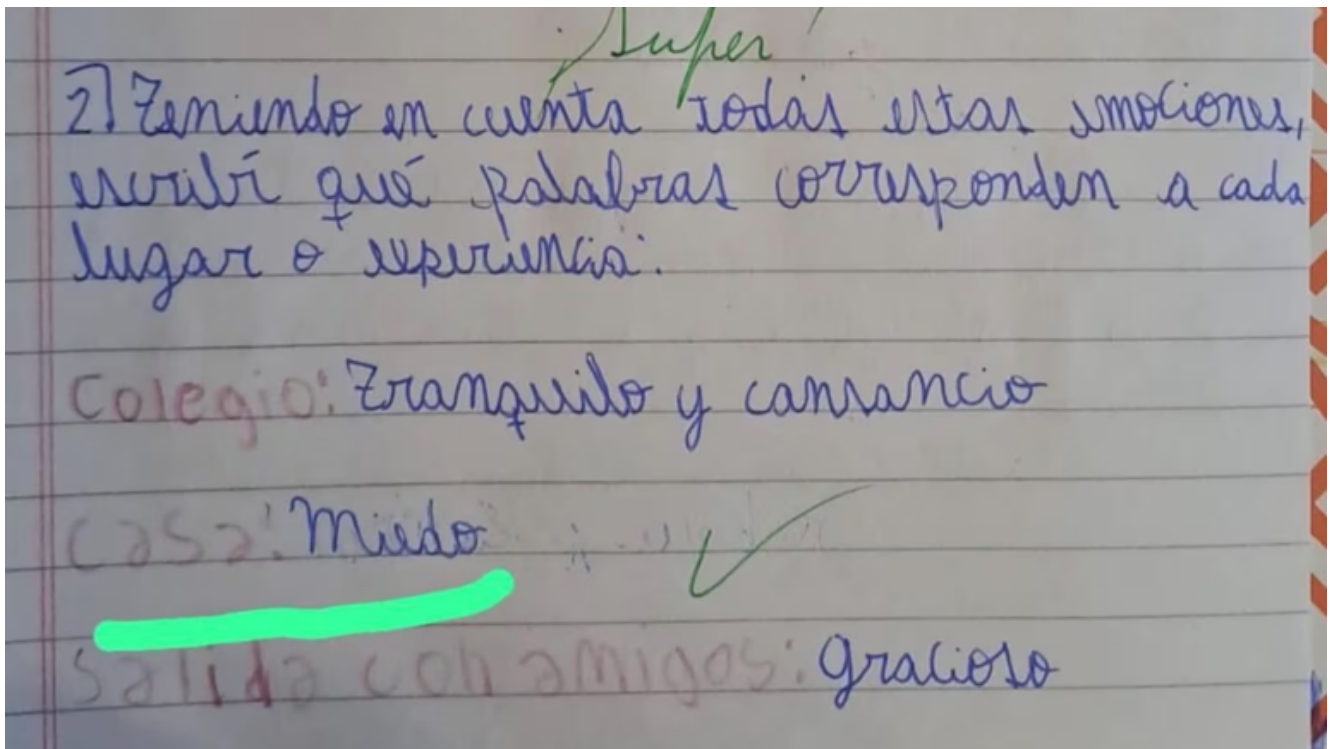 ¡Super!
2) Teniendo en cuenta todas estas emociones,
escribí qué palabras corresponden a cada
lugar o experiencia:
Colegio: Tranquilo y cansancio
Casa: Miedo
Salida con amigos: Gracioso